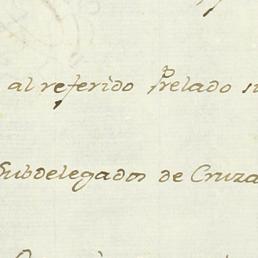 al referido Prelado
Subdelegados de Cruza